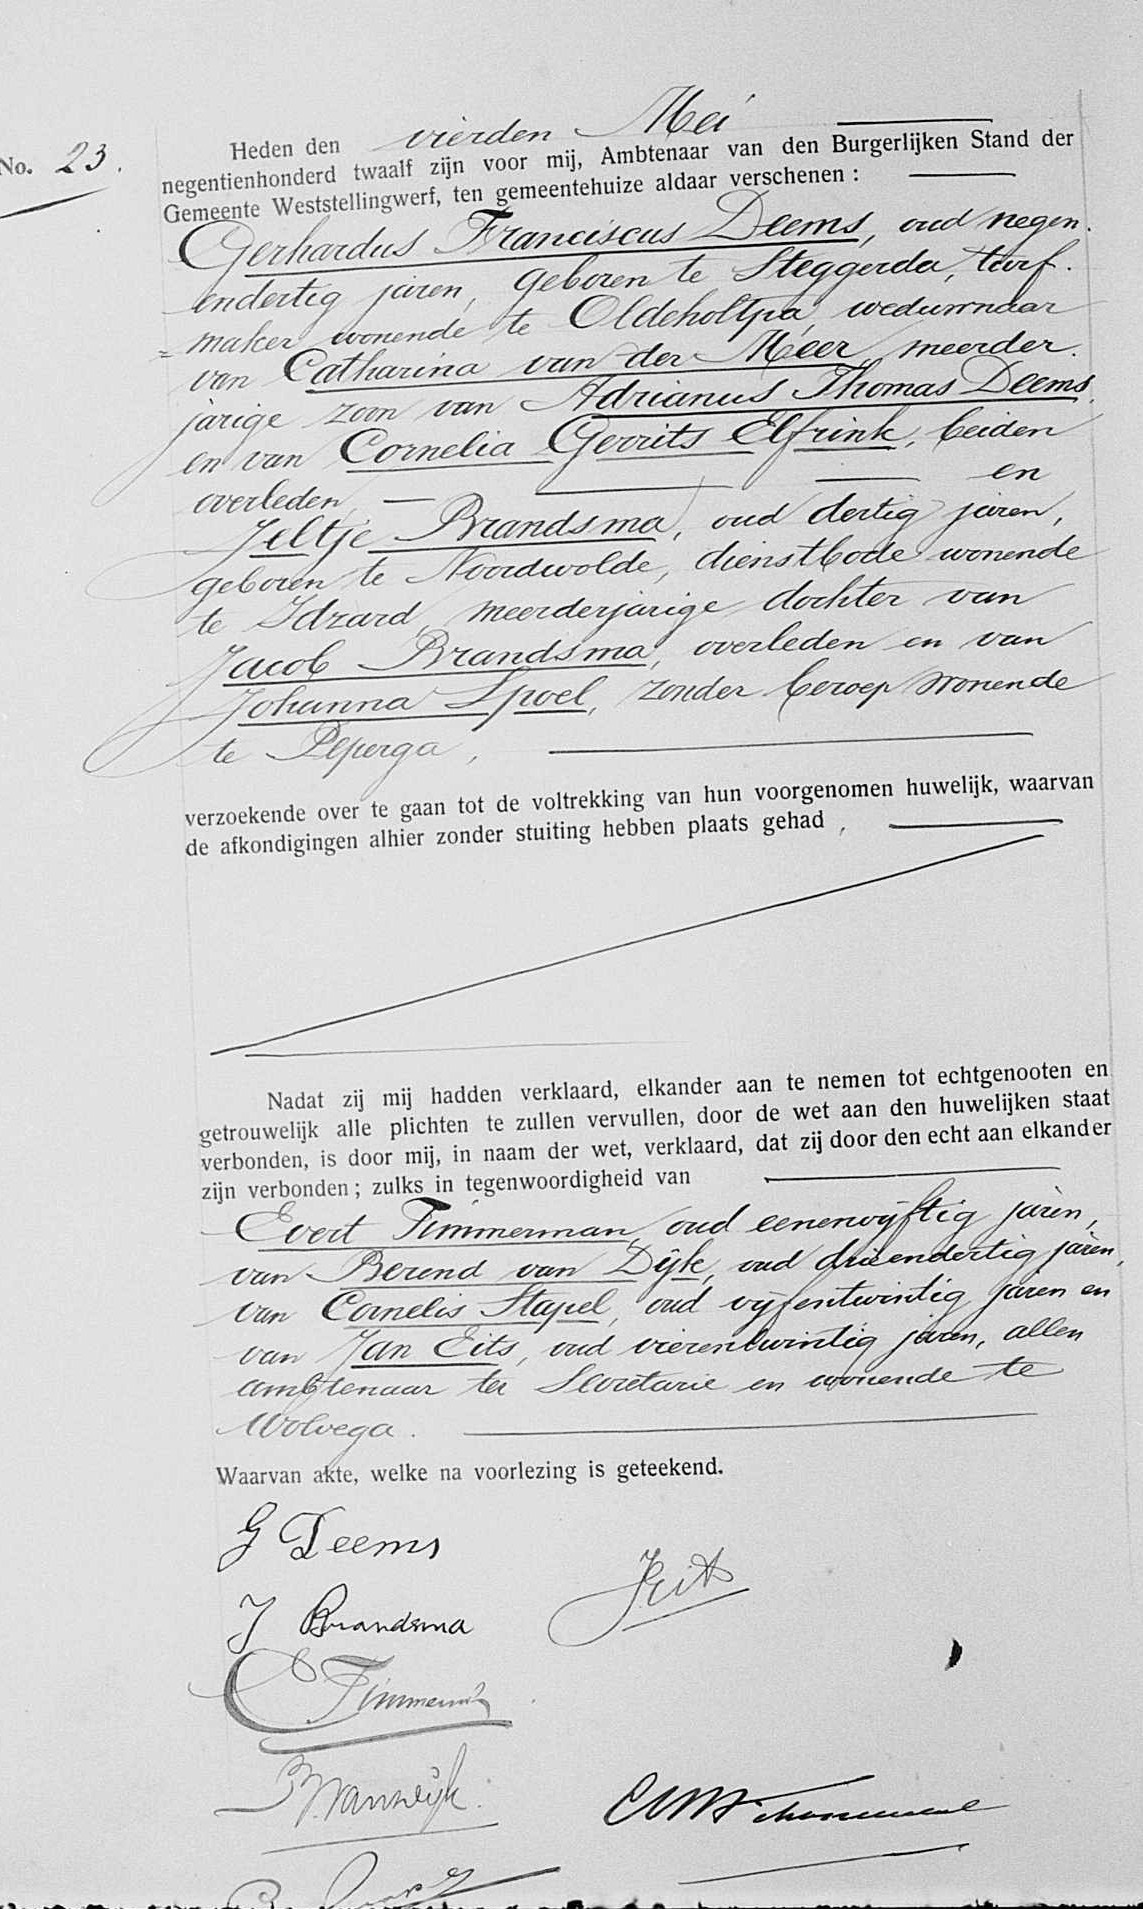 No. 23.
Heden den vierden Mei
negentienhonderd twaalf zijn voor mij, Ambtenaar van den Burgerlijken Stand der
Gemeente Weststellingwerf, ten gemeentehuize aldaar verschenen :
Gerhardus Franciscus Deems, oud negen
endertig jaren, geboren te Steggerda, turf-
maker wonende te Oldeholtpa, weduwnaar
van Catharina van der Meer, meerder-
jarige zoon van Adrianus Thomas Deems
en van Cornelia Gerrits Elfrink, beiden
overleden, en
Jeltje Brandsma, oud dertig jaren,
geboren te Noordwolde, dienstbode wonende
te Idzard, meerderjarige dochter van
Jacob Brandsma, overleden en van
Johanna Spoel, zonder beroep wonende
te Peperga,
verzoekende over te gaan tot de voltrekking van hun voorgenomen huwelijk, waarvan
de afkondigingen alhier zonder stuiting hebben plaats gehad,
Nadat zij mij hadden verklaard, elkander aan te nemen tot echtgenooten en
getrouwelijk alle plichten te zullen vervullen, door de wet aan den huwelijken staat
verbonden, is door mij, in naam der wet, verklaard, dat zij door den echt aan elkander
zijn verbonden ; zulks in tegenwoordigheid van
Evert Timmerman, oud eenenvijftig jaren,
van Berend van Dijk, oud drieendertig jaren,
van Cornelis Stapel, oud vijfentwintig jaren en
van Jan Eits, oud vierentwintig jaren, allen
ambtenaar ter Secretarie en wonende te
Wolvega.
Waarvan akte, welke na voorlezing is geteekend.
G Deems
JEits
J Brandsma
E Timmerman
B. van Dijk.